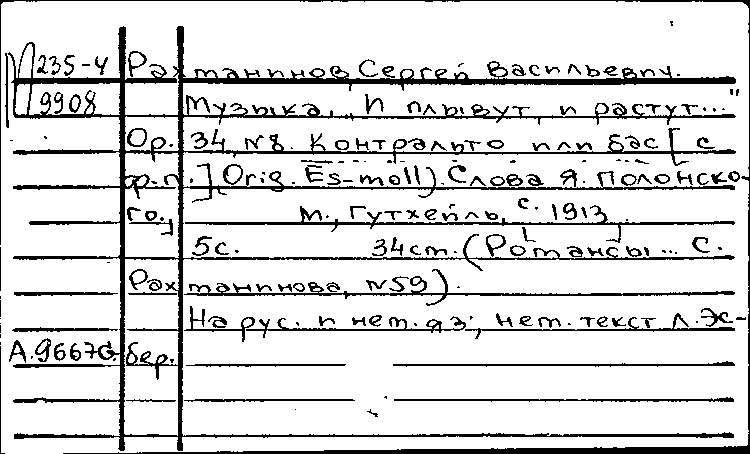 235-4 Рахманинов, Сергей Васильевич.
9908 Музыка, „И плывут, и растут..."
Ор. 34, №8. Контральто или бас [с
ф.п.], Orig. Es-moll). Слова Я. Полонско-
го.] М., Гутхейль, с. 1913
5с. 34см. (Романсы... С.
Рахманинова, №59).
На рус. и нем. яз., нем. текст Л. Эс-
А.9667G бер.